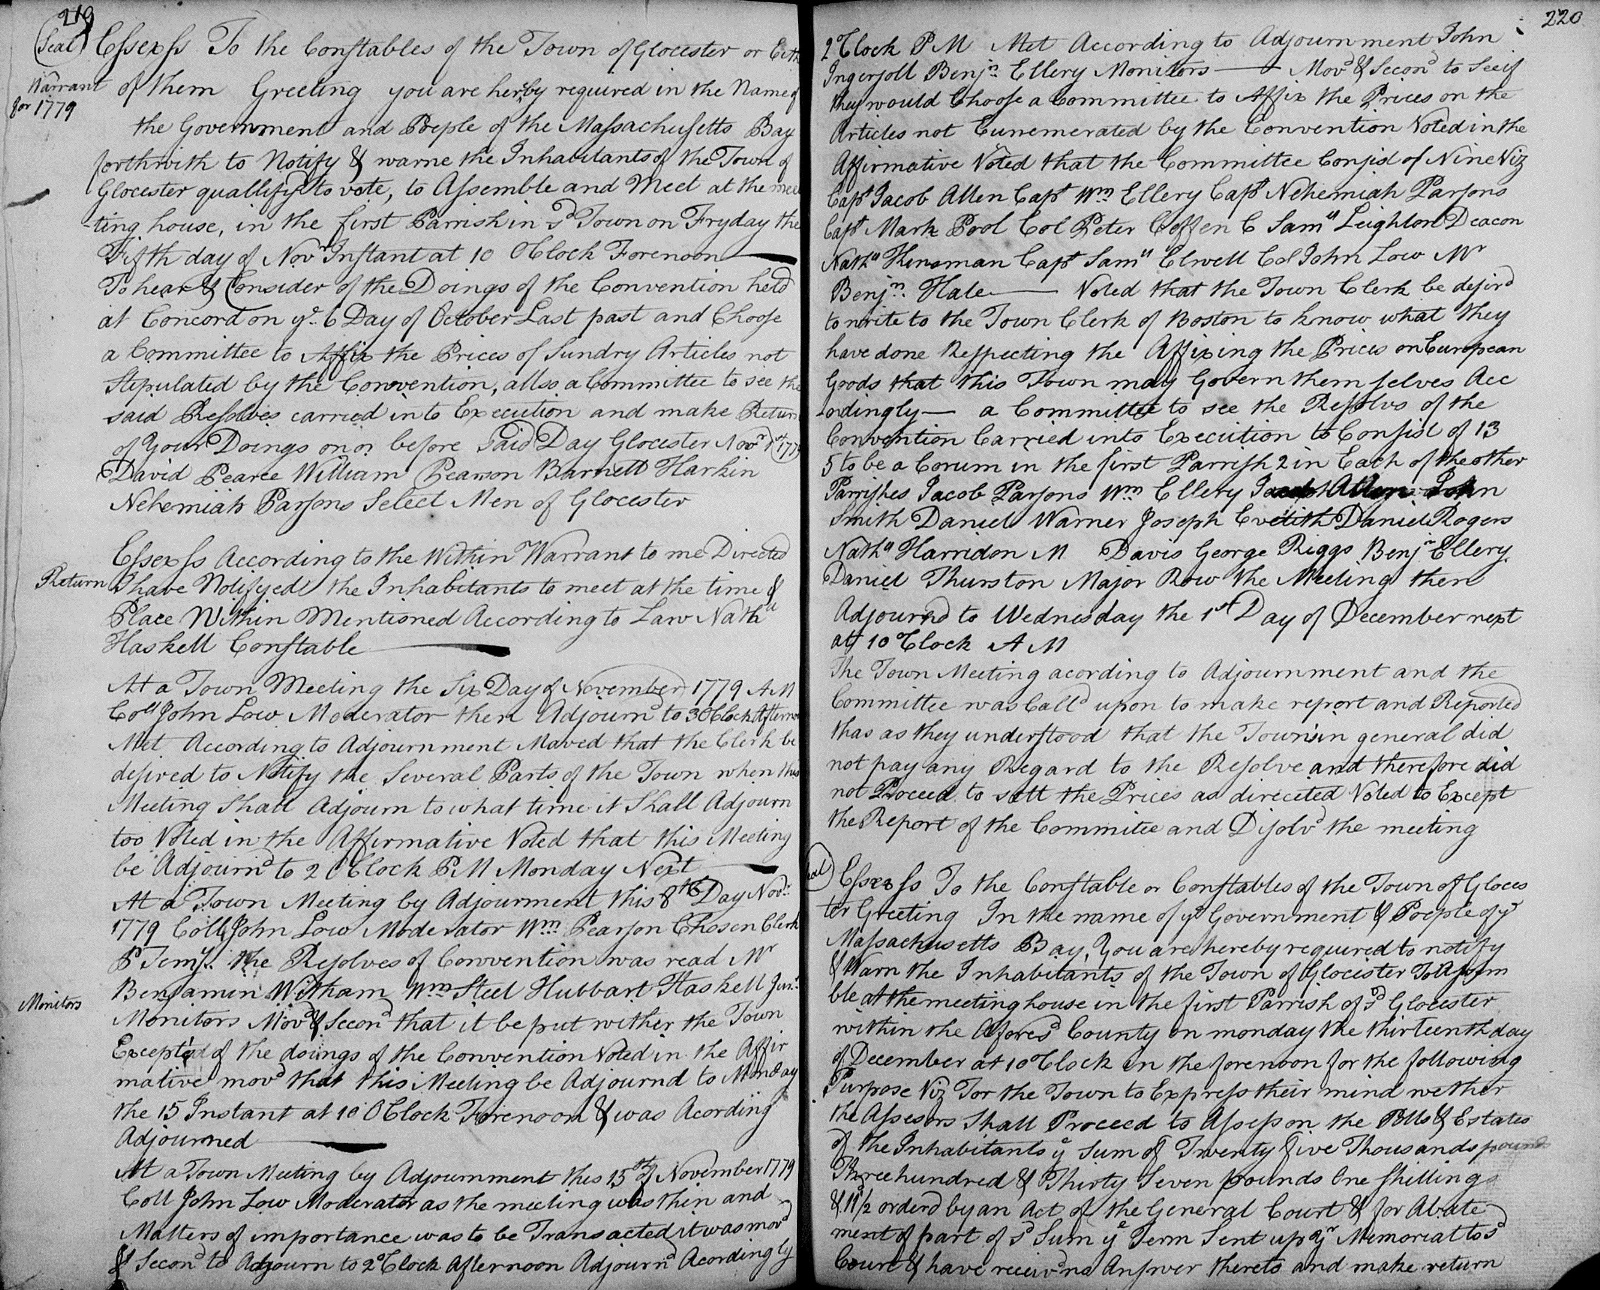 219
Seal Essex ss. To the Constables of the Town of Glocester or Eith
Warrant for 1779
of them Greeting you are herby required in the Name of
the Government and People of the Massachusetts Bay
forthwith to Notify & warne the Inhabitants of the Town of
Glocester quallifyd to vote, to Assemble and Meet at the mee
ting house, in the first Parrish in sd Town on Fryday the
Fifth day of Novr Instant at 10 OClock Forenoon
To hear & Consider of the Doings of the Convention held
at Concord on ye 6 Day of October Last past and Choose
a Committee to Affix the Prices of Sundry Articles not
Stepulated by the Convention, allso a Committee to see the
said Resolves carried into Execution and make Return
of Your Doings on or before Said Day Glocester Novr 1st 1779
David Pearce William Pearson Barnett Harkin
Nehemiah Parsons Select Men of Glocester
Essex ss According to the Within Warrant to me Directed
Return I have Notifyed the Inhabitants to meet at the time &
Place Within Mentioned According to Law Nathll
Haskell Constable
At a Town Meeting the Six Day of November 1779 A M
Coll John Low Moderator then Adjournd to 3 OClock Afterno
Met According to Adjournment Moved that the Clerk be
desired to Notify the Several Parts of the Town when this
Meeting Shall Adjourn to what time it Shall Adjourn
too Voted in the Affirmative Voted that this Meeting
be Adjournd to 2 OClock P.M Monday Next
At a Town Meeting by Adjourment this 8th Day Novr
1779 Coll John Low Moderator Wm Pearson Chosen Clerk
P Temp. the Resolves of Convention was read Mr
Benjamin Witham Wm Steel Hubbart Haskell Junr
Monitors
Monitors Movd & Second that it be put wither the Town
Excepted of the doings of the Convention Voted in the Affir
mative movd that this Meeting be Adjournd to Monday
the 15 Instant at 10 OClock Forenoon & was Acording
Adjourned
At a Town Meeting by Adjournment this 15th of November 1779
Coll John Low Moderator as the meeting was thin and
Matters of importance was to be Transacted it was movd
& Second to Adjourn to 2 oClock Afternoon Adjournd Acordingly
220
2 oClock P M Met According to Adjournment John
Ingersoll Benjn Ellery Monitors Movd & Second to See if
they would Choose a Committee to Affix the Prices on the
Articles not Eunemerated by the Convention Voted in the
Affirmative Voted that the Committee Consist of Nine Viz
Capt Jacob Allen Capt Wm Ellery Capt Nehemiah Parsons
Capt Mark Pool Col Peter Coffen C Samll Leighton Deacon
Nathll Kinsman Capt Samll Elwell Col John Low Mr
Benjn. Hale Voted that the Town Clerk be desird
to write to the Town Clerk of Boston to know what they
have done Respecting the Affixing the Prices on European
Goods that this Town may Govern them selves Acc
ordingly a Committee to see the Resolvs of the
Convention Carried into Execution to Consist of 13
5 to be a Corum in the first Parrish 2 in Each of the other
Parrishes Jacob Parsons Wm Ellery John
Smith Daniel Warner Joseph Eveleth Daniel Rogers
Nathll Harridon M Davis George Riggs Benjn Ellery
Daniel Thurston Major Row the Meeting then
Adjournd to Wednesday the 1st Day of December next
att 10 oClock A M
The Town Meeting acording to Adjournment and the
Committee was Calld upon to make report and Reported
thas as they understood that the Town in general did
not pay any Regard to the Resolve and therefore did
not Proceed to sett the Prices as directed Voted to Except
the Report of the Commitee and Disolvd the meeting
Essex ss To the Constable or Constables of the Town of Gloces
ter Greeting In the name of ye Government & People of ye
Massachusetts Bay, You are hereby required to notify
& Warn the Inhabitants of the Town of Glocester To Assem
ble at the meeting house in the first Parrish of sd Glocester
within the Aforesd County on monday the thirteenth day
of December at 10 oClock in the forenoon for the following
Purpose Viz For the Town to Express their mind wether
the Assesors Shall Proceed to Assess on the Polls & Estates
of the Inhabitants ye Sum of Twenty five Thousands pounds
Three hundred & Thirty Seven pounds One shilling
& 11 1/2 orderd by an Act of the General Court & for Abate
ment of part of sd Sum ye Term Sent up yr Memorial to sd
Court & have receivd no Answer thereto and make return